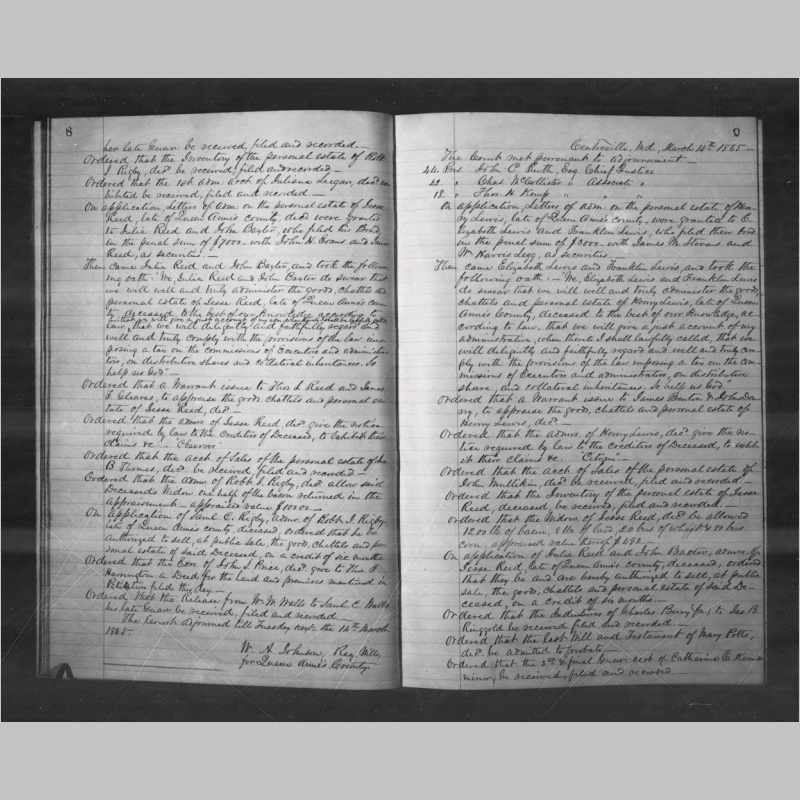 8
her late Guan be received, filed and recorded.
Ordered that the Inventory of the personal estate of Robt
I Rigby, decd be received, filed and recorded.
Ordered that the 1st adm. acct of Juliana decd
be received, filed and recorded.
On application, Letters of adm. on the personal estate of Jesse
Reed, late of Queen Anne's county, decd were granted
to Julia Reed and John Baxter, who filed their Bond,
in the penal sum of $7000. with John H. Evans and
Reed, as securities.
Then came Julia Reed and John Baxter, and took the follow
ing oath. We Julia Reed and John Baxter do swear that
we will well and truly administer the goods, chattels and
personal estate of Jesse Reed, late of Queen Anne's coun
ty, deceased, to the best of our knowledge, according to
law, that we will diligently and faithfully regard and
well and truly comply with the provisions of the law im
posing a tax on the commissions of Executors and administra
tors, on distributive shares and collateral inheritances. So
help us God.
Ordered that a Warrant issue to Thos. Reed and James
to appraise the goods, chattels and personal es
tate of Jesse Reed, decd
Ordered that the admr of Jesse Reed, decd give the notice
required by law to the Creditors of Deceased, to exhibit their
claims &c. in "Observer"
Ordered that the acct of Sales of the personal estate of
B. Turner, decd be received, filed and recorded.
Ordered that the admr of Robt I. Rigby, decd allow said
Deceaseds Widow one half of the bacon returned in the
appraisement appraised value $100.00
On application of Saml C. Rigby, admr of Robt I. Rigby
late of Queen Annes county, deceased, ordered that he be
authorized to sell, at public sale, the goods, chattels and per
sonal estate of said Deceased, on a credit of six months
Ordered that the Exr of John S. Price, decd give to Tho F.
Harrington a Deed for the land and premises mentioned in
Petition filed this day
Ordered that the Release, from W. W. Watts to Saml C. Watts
his late Guan be received, filed and recorded.
The Court adjourned till Tuesday next the 14th March
1865.
W. A. Johnson, Reg. Wills,
for Queen Anne's County
9
Centreville, Md, March 14th 1865
The Court met persuant to adjournment
Pres John C. Ruth, Esq Chief Justice
" Chas McCallister " Associate "
" Thos. H. Kemp " "
On application, Letters of adm. on the personal estate of Hen
ry Lewis, late of Queen Anne's County, were granted to E
lizabeth Lewis and Franklin Lewis, who filed their Bond
in the penal sum of $3000. with James M. Stevens and
Wm Harris as securities
Then came Elizabeth Lewis and Franklin Lewis, and took the
following oath. We, Elizabeth Lewis and Franklin Lewis
do swear that we will well and truly administer the goods,
chattels and personal estate of Henry Lewis, late of Queen
Anne's County, deceased to the best of our knowledge, ac
cording to law, that we will give a just account of my
administration, when thereto I shall lawfully called, that we
will diligently and faithfully regard and well and truly com
ply with the provisions of the law imposing a tax on the com
missions of Executors and administrators, on distributive
share, and collateral inheritances. So help us God"
Ordered that a Warrant issue to James Benton & John
to appraise the goods, chattels and personal estate of
Henry Lewis, decd
Ordered that the admr. of Henry Lewis, decd give the no
tice required by law to the Creditors of Deceased, to exhib
it their claims &c. "Citizen"
Ordered that the acct of Sales of the personal estate of
John Millikin, decd be received, filed and recorded.
Ordered that the Inventory of the personal estate of Jesse
Reed, deceased, be received, filed and recorded.
Ordered that the Widow of Jesse Reed, decd be allowed
1200 lb of bacon, lard, 20 bus of wheat & bus
corn, appraised value
On application of Julia Reed and John Baxter, admrs of
Jesse Reed, late of Queen Anne's county, deceased, ordered
that they be and are hereby authorized to sell, at public
sale, the goods, chattels and personal estate of said De
ceased, on a credit of six months.
Ordered that the Indenture of Charles Berry to Jas B
Ringgold be received, filed and recorded.
Ordered that the Last Will and Testament of Mary Potts,
decd be admitted to probate.
Ordered that the 3rd & final Guan acct of Catharine E.
minor, be received, filed and recorded